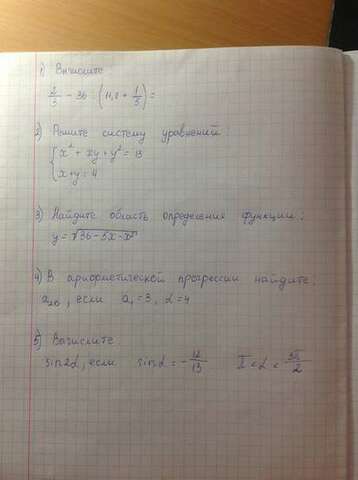 1) Вычислите
2/3 - 36 : (11,8 + 1/5) =
2) Решите систему уравнений:
{ x² + xy + y² = 13
x + y = 4
3) Найдите область определения функции:
y = √36 - 5x - x²
4) В арифметической прогрессии найдите
a₂₆, если a₁ = 3, d = 4
5) Вычислите
sin2α, если sinα = - 12/13 π < α < 3π/2